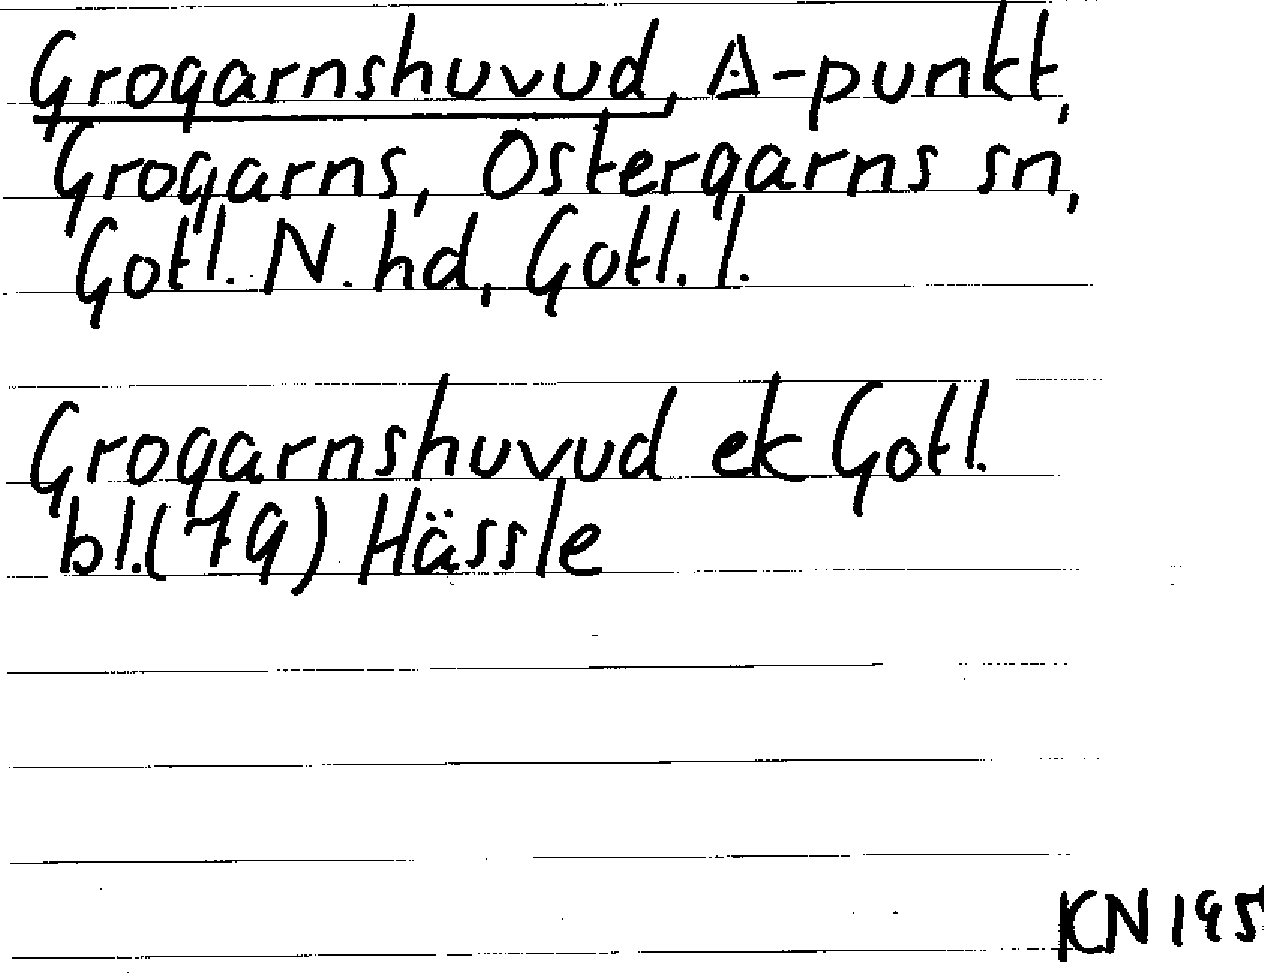 Grogarnshuvud, ∆-punkt,
Grogarns, Östergarns sn,
Gotl. N. hd, Gotl. l.
Grogarnshuvud ek Gotl.
bl.(79) Hässle
KN 195